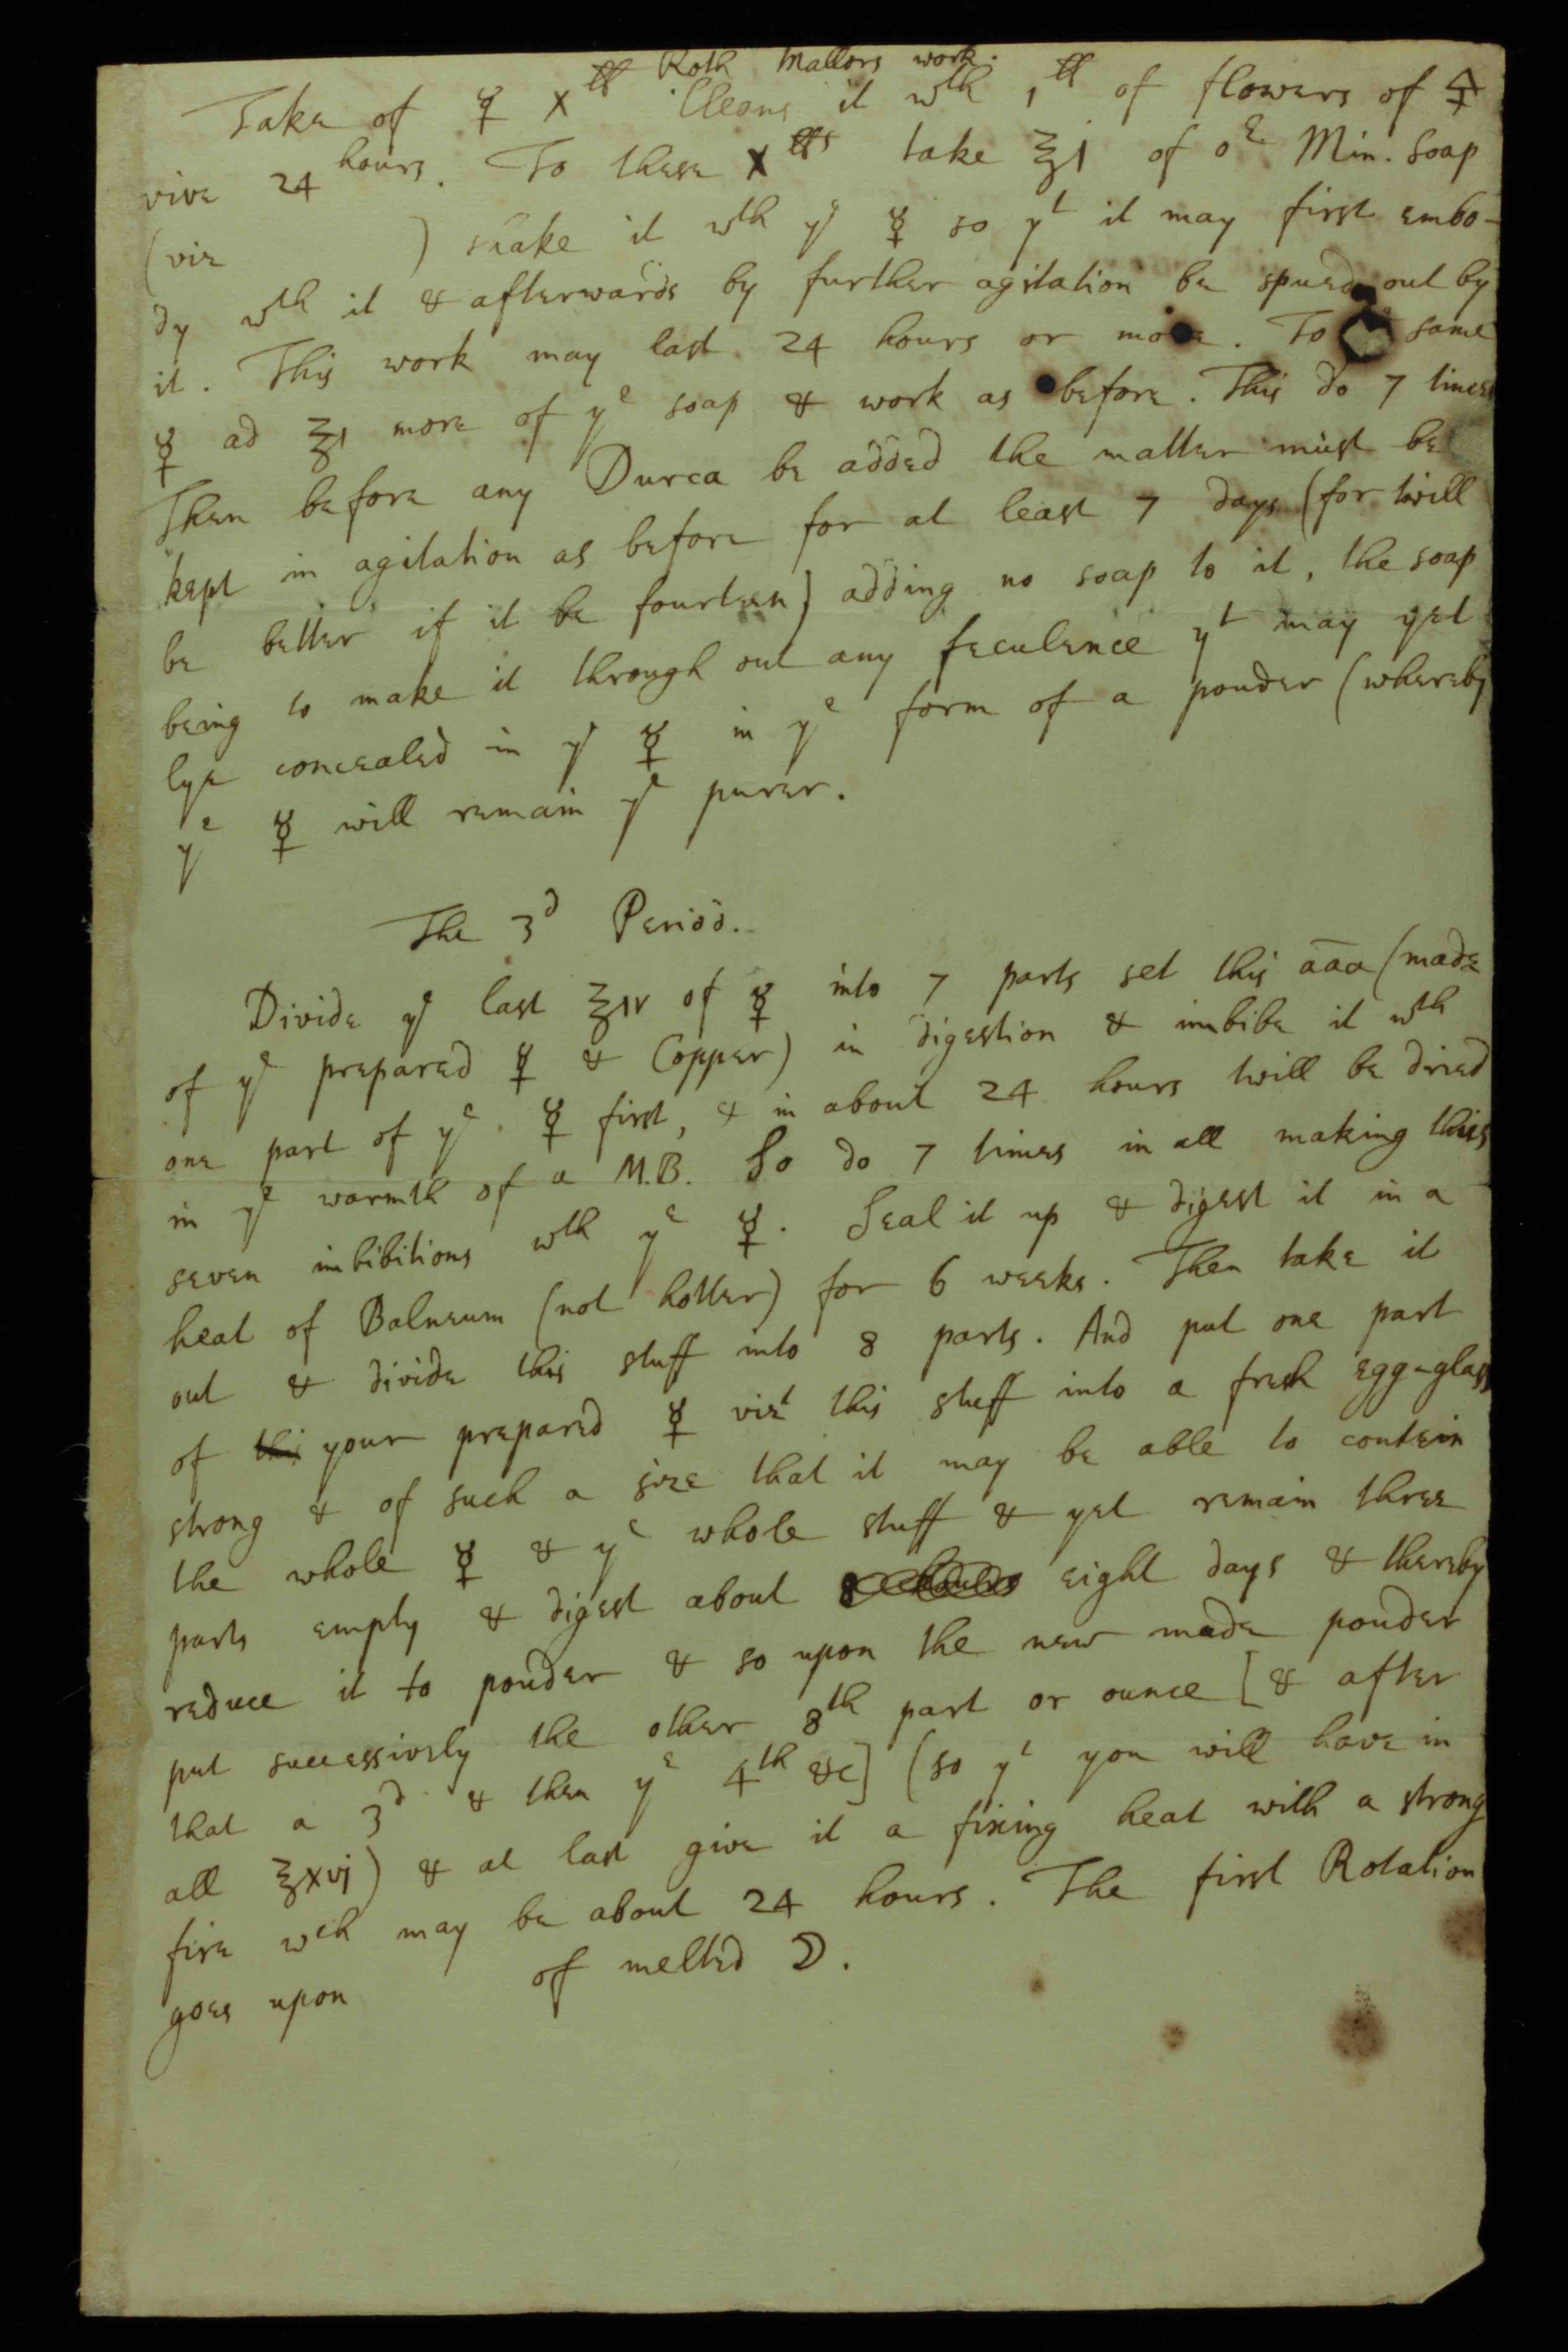 Roth Mallors work.
Take of ☿ X℔ Cleans it wth 1℔ of flowers of 🜍
vive 24 hours. To these X℔s take ℥1 of oe Min. soap
(viz ) shake it wth ye ☿ so yt it may first embo-
dy wth it & afterwards by further agitation be spued out by
it. This work may last 24 hours or more. To same
☿ ad ℥1 more of ye soap & work as before. This do 7 times
Then before any Durca be added the matter must be
kept in agitation as before for at least 7 days (for twill
be better if it be fourteen) adding no soap to it, the soap
being to make it through out any feculence yt may yet
lye concealed in ye ☿ in ye form of a pouder (whereby
ye ☿ will remain ye purer.
The 3d Period.
Divide ye last ℥iv of ☿ into 7 parts set this āāa (made
of ye prepared ☿ & Copper) in digestion & imbibe it wth
one part of ye ☿ first, & in about 24 hours twill be dried
in ye warmth of a M.B. So do 7 times in all making this
seven imbibitions wth ye ☿. Seal it up & digest it in a
heat of Balneum (not hotter) for 6 weeks. Then take it
out & divide this stuff into 8 parts. And put one part
of thi your prepared ☿ vizt this stuff into a fresh egg-glass
strong & of such a size that it may be able to contein
the whole ☿ & ye whole stuff & yet remain three
parts empty & digest about 8 hours eight days & thereby
reduce it to pouder & so upon the new made pouder
put successively the other 8th part or ounce [& after
that a 3d & then ye 4th &c] (so yt you will have in
all ℥xvj) & at last give it a fixing heat with a strong
fire wch may be about 24 hours. The first Rotation
goes upon of melted ☽.